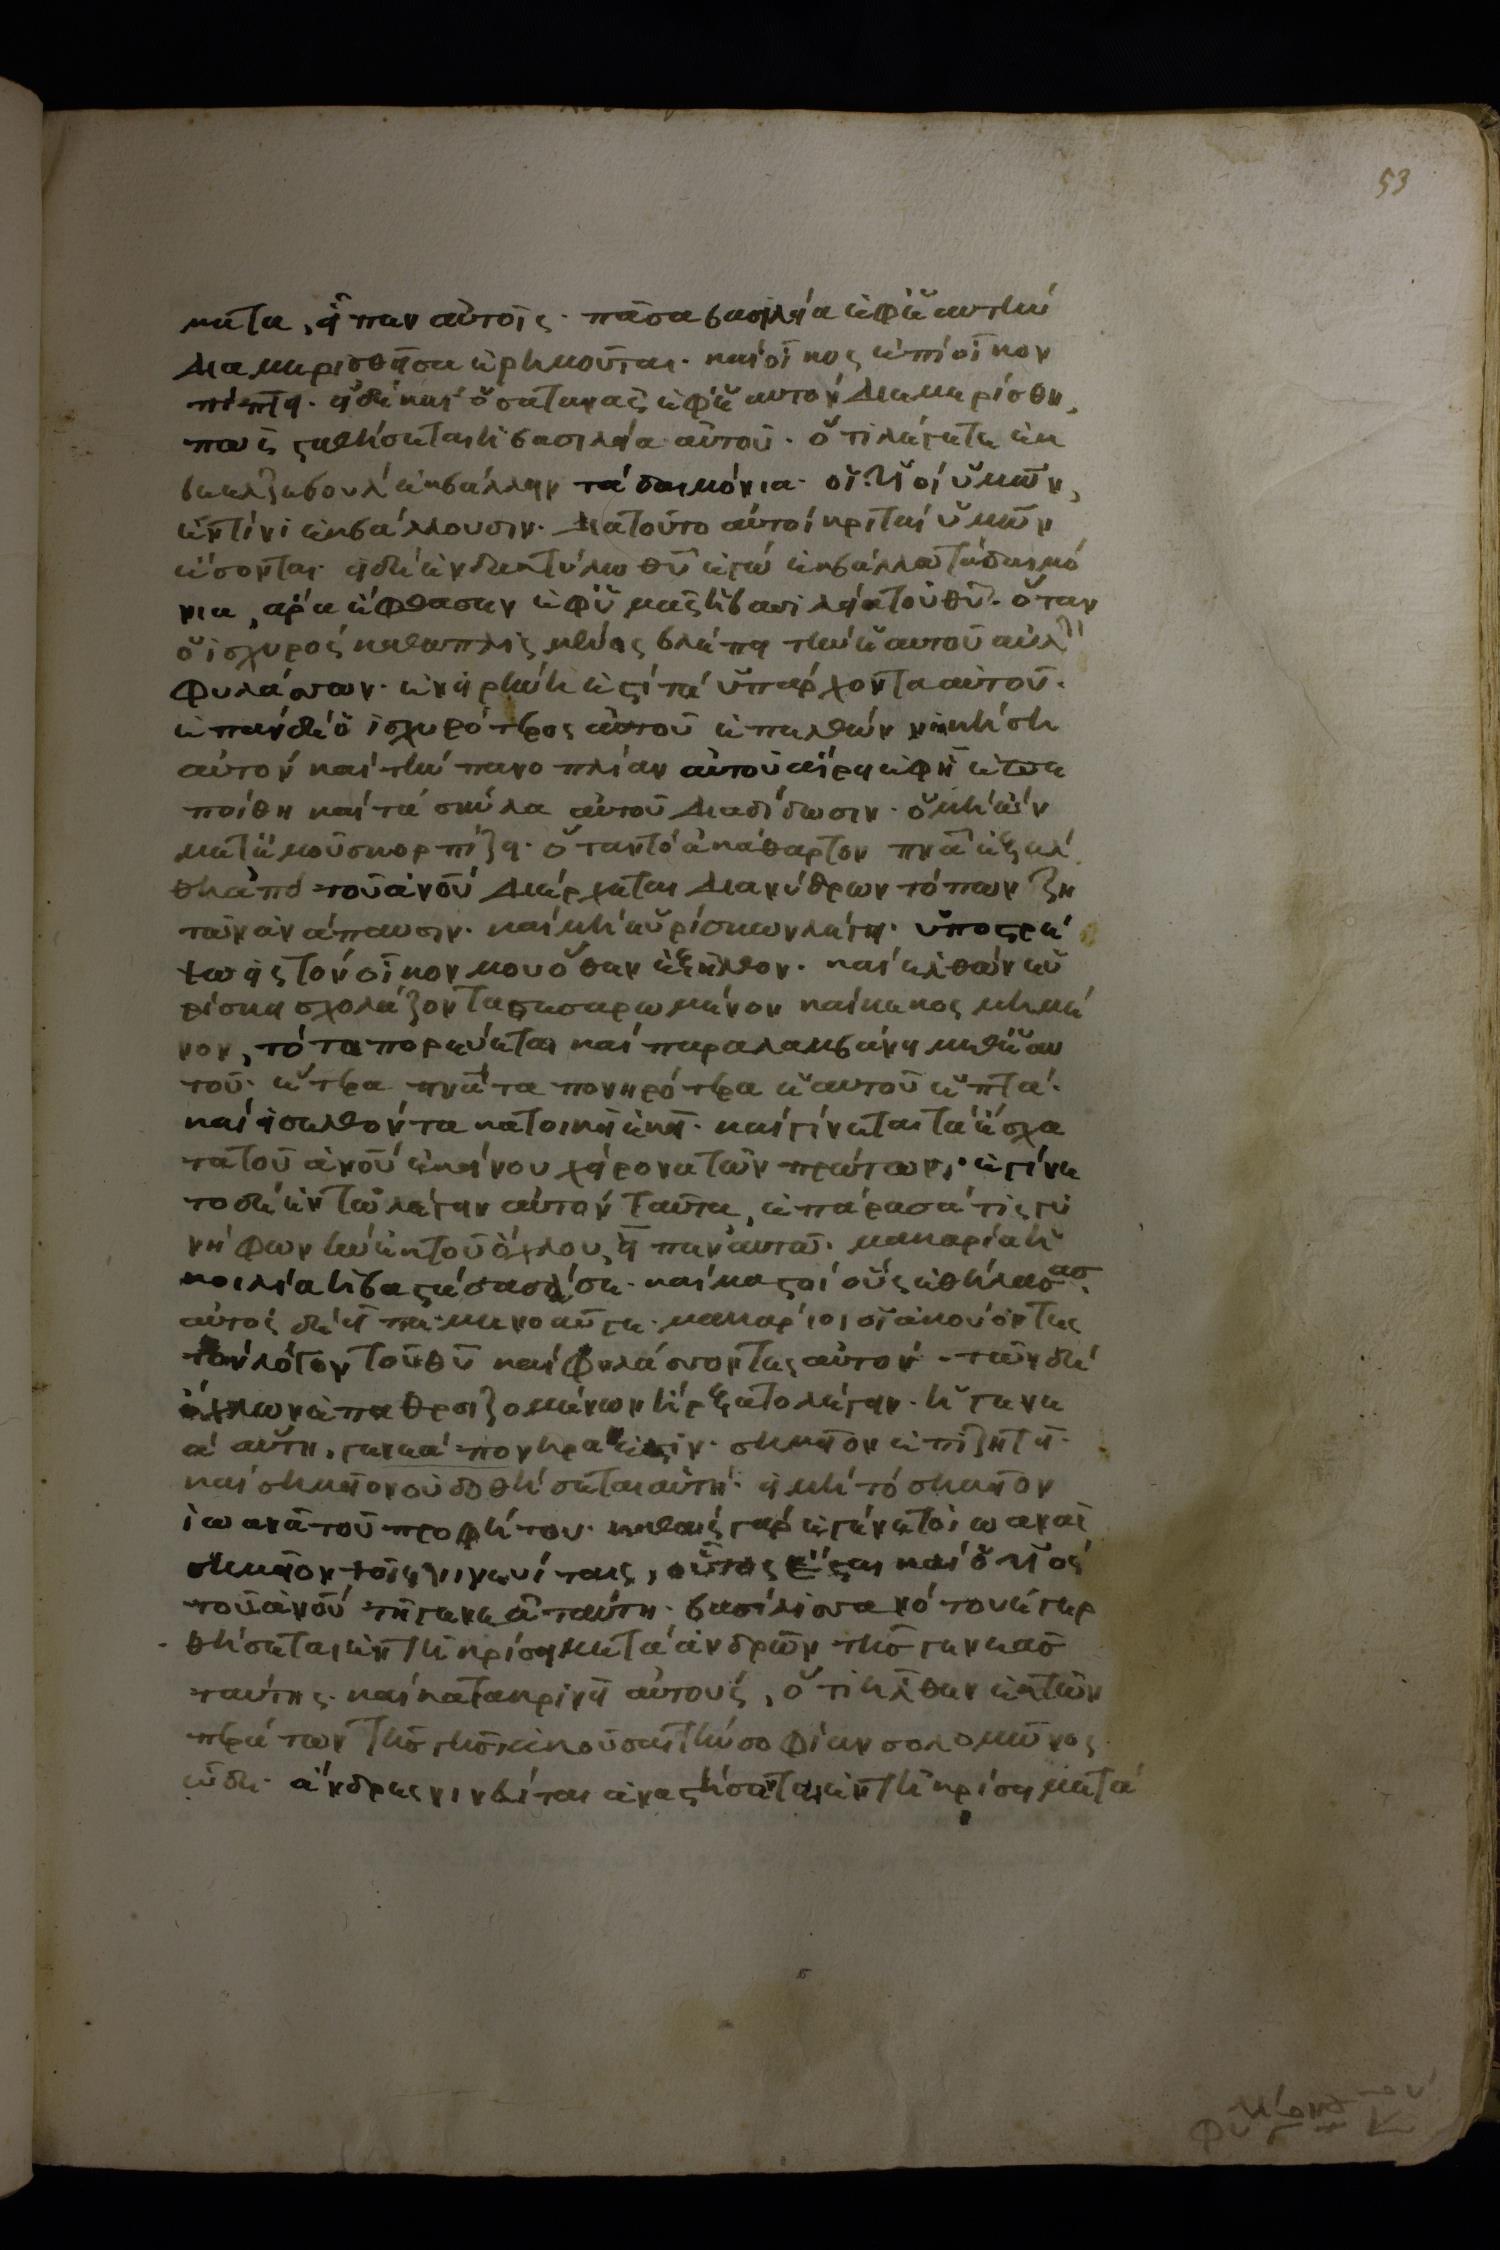 53
ματα, εἶπεν αὐτοῖς· πᾶσα βασιλεία ἐφ' ἑαυτὴν
διαμερισθεῖσα ἐρημοῦται· καὶ οἶκος ἐπὶ οἶκον
πίπτει· εἰ δὲ καὶ ὁ σατανᾶς ἐφ' ἑαυτὸν διεμερίσθη,
πῶς σταθήσεται ἡ βασιλεία αὐτοῦ· ὅτι λέγετε ἐν
βεελζεβοὺλ ἐκβάλλειν τὰ δαιμόνια· οἱ υἱοὶ ὑμῶν,
ἐν τίνι ἐκβάλλουσιν· διατοῦτο αὐτοὶ κριταὶ ὑμῶν
ἔσονται· εἰ δὲ ἐν δακτύλω θυ ἐγὼ ἐκβάλλω τὰ δαιμό
νια, ἄρα ἔφθασεν ἐφ' ὑμᾶς ἡ βασιλεία τοῦ θυ· ὅταν
ὁ ἰσχυρὸς καθωπλισμένος βλέπη τὴν ἑαυτοῦ αὐλ
φυλάσσων· ἐν εἰρήνη ἐστὶ τὰ ὑπάρχοντα αὐτοῦ·
ἐπὰν δὲ ὁ ἰσχυρότερος αὐτοῦ ἐπελθὼν νικήση
αὐτὸν καὶ τὴν πανοπλίαν αὐτοῦ αἴρει ἐφ' ἧ ἐπε
ποίθη καὶ τὰ σκύλα αὐτοῦ διαδίδωσιν· ὁ μὴ ὢν
μετ' ἐμοῦ σκορπίζει· ὅταν τὸ ἀκάθαρτον πνα ἐξελ
θη ἀπὸ τοῦ ἀνου διέρχεται δι' ἀνύδρων τόπων ζη
τοῦν ἀνάπαυσιν· καὶ μὴ εὑρίσκων λέγει· ὑποστρέ
ψω εἰς τὸν οἶκον μου ὅθεν ἐξῆλθον· καὶ ἐλθὼν εὑ
ρίσκει σχολάζοντα σεσαρωμένον καὶ κεκοσμημέ
νον, τότε πορεύεται καὶ παραλαμβάνει μεθ' ἑαυ
τοῦ· ἕτερα πνατα πονηρότερα ἑαυτοῦ ἑπτά·
καὶ εἰσελθόντα κατοικεῖ ἐκεῖ· καὶ γίνεται τὰ ἔσχα
τα τοῦ ἀνου ἐκείνου χείρονα τῶν πρώτων· ἐγένε
το δὲ ἐν τῶ λέγειν αὐτὸν ταῦτα, ἐπάρασά τις γυ
νὴ φωνὴν ἐκ τοῦ ὄχλου, εἶπεν αὐτῶ· μακαρία ἡ
κοιλία ἡ βαστάσασά σε· καὶ μαστοὶ οὓς ἐθήλασας·
αὐτὸς δὲ εἶπε· μενοῦνγε· μακάριοι οἱ ἀκούοντες
τὸν λόγον τοῦ θυ καὶ φυλάσσοντες αὐτόν· τῶν δὲ
ὄχλων ἐπαθροιζομένων ἤρξατο λέγειν· ἡ γενε
ὰ αὕτη, γενεὰ πονηρά ἐστιν· σημεῖον ἐπιζητεῖ·
καὶ σημεῖον οὐ δοθήσεται αὐτῆ· εἰ μὴ τὸ σημεῖον
ἰωνᾶ τοῦ προφήτου· καθὼς γὰρ ἐγένετο ἰωνᾶς
σημεῖον τοῖς νινευίταις, οὕτως ἔσται καὶ ὁ υἱὸς
τοῦ ἀνου τῆ γενεᾶ ταύτη· βασίλισσα νότου ἐγερ
θήσεται ἐν τῆ κρίσει μετὰ ἀνδρῶν τῆς γενεᾶς
ταύτης· καὶ κατακρινεῖ αὐτούς, ὅτι ἦλθεν ἐκ τῶν
περάτων τῆς γῆς ἀκοῦσαι τὴν σοφίαν σολομῶνος
ὧδε· ἄνδρες νινευῖται ἀναστήσονται ἐν τῆ κρίσει μετὰ